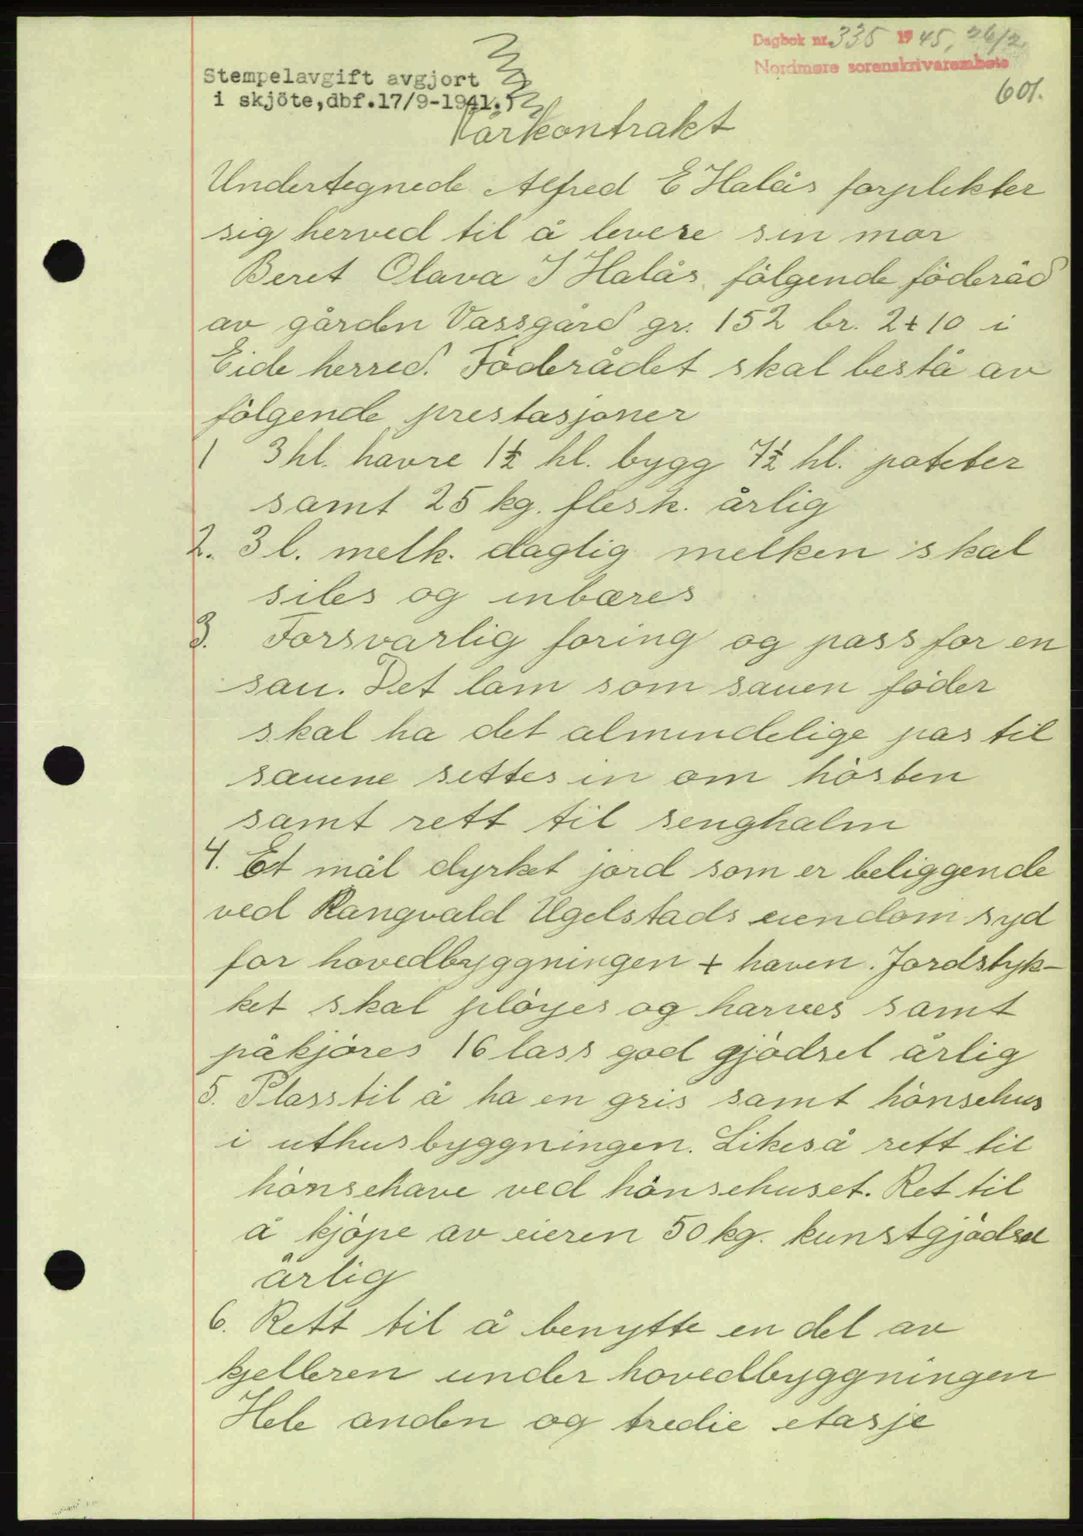 Dagbok nr. 335 1945, 26/2.
Nordmøre sorenskrivarembete
601.
Stempelavgift avgjort
i skjöte, dbf.17/9-1941.
Kårkontrakt
Undertegnede Alfred E Halås forplikter
sig herved til å levere sin mor
Beret Olava J Halås følgende föderåd
av gården Vassgård gr. 152 br. 2+10 i
Eide herred. Föderådet skal bestå av
fölgende prestasjoner
1 3 hl. havre 1½ hl. bygg 7½ hl. poteter
samt 25 kg. flesk. årlig
2. 3 l. melk. daglig melken skal
siles og inbæres
3. Forsvarlig foring og pass for en
sau. Det lam som sauen föder
skal ha det almindelige pas til
sauene settes in om hösten
samt rett til senghalm
4. Et mål dyrket jord som er beliggende
ved Rangvald Ugelstads eiendom syd
for hovedbyggningen + haven. Jordstyk-
ket skal plöyes og harves samt
påkjöres 16 lass god gjödsel årlig
5. Plass til å ha en gris samt hönsehus
i uthusbyggningen. Likeså rett til
hönsehave ved hönsehuset. Ret til
å kjöpe av eieren 50 kg. kunstgjödsel
årlig
6. Rett til å benytte en del av
kjelleren under hovedbyggningen
Hele anden og tredie etasje